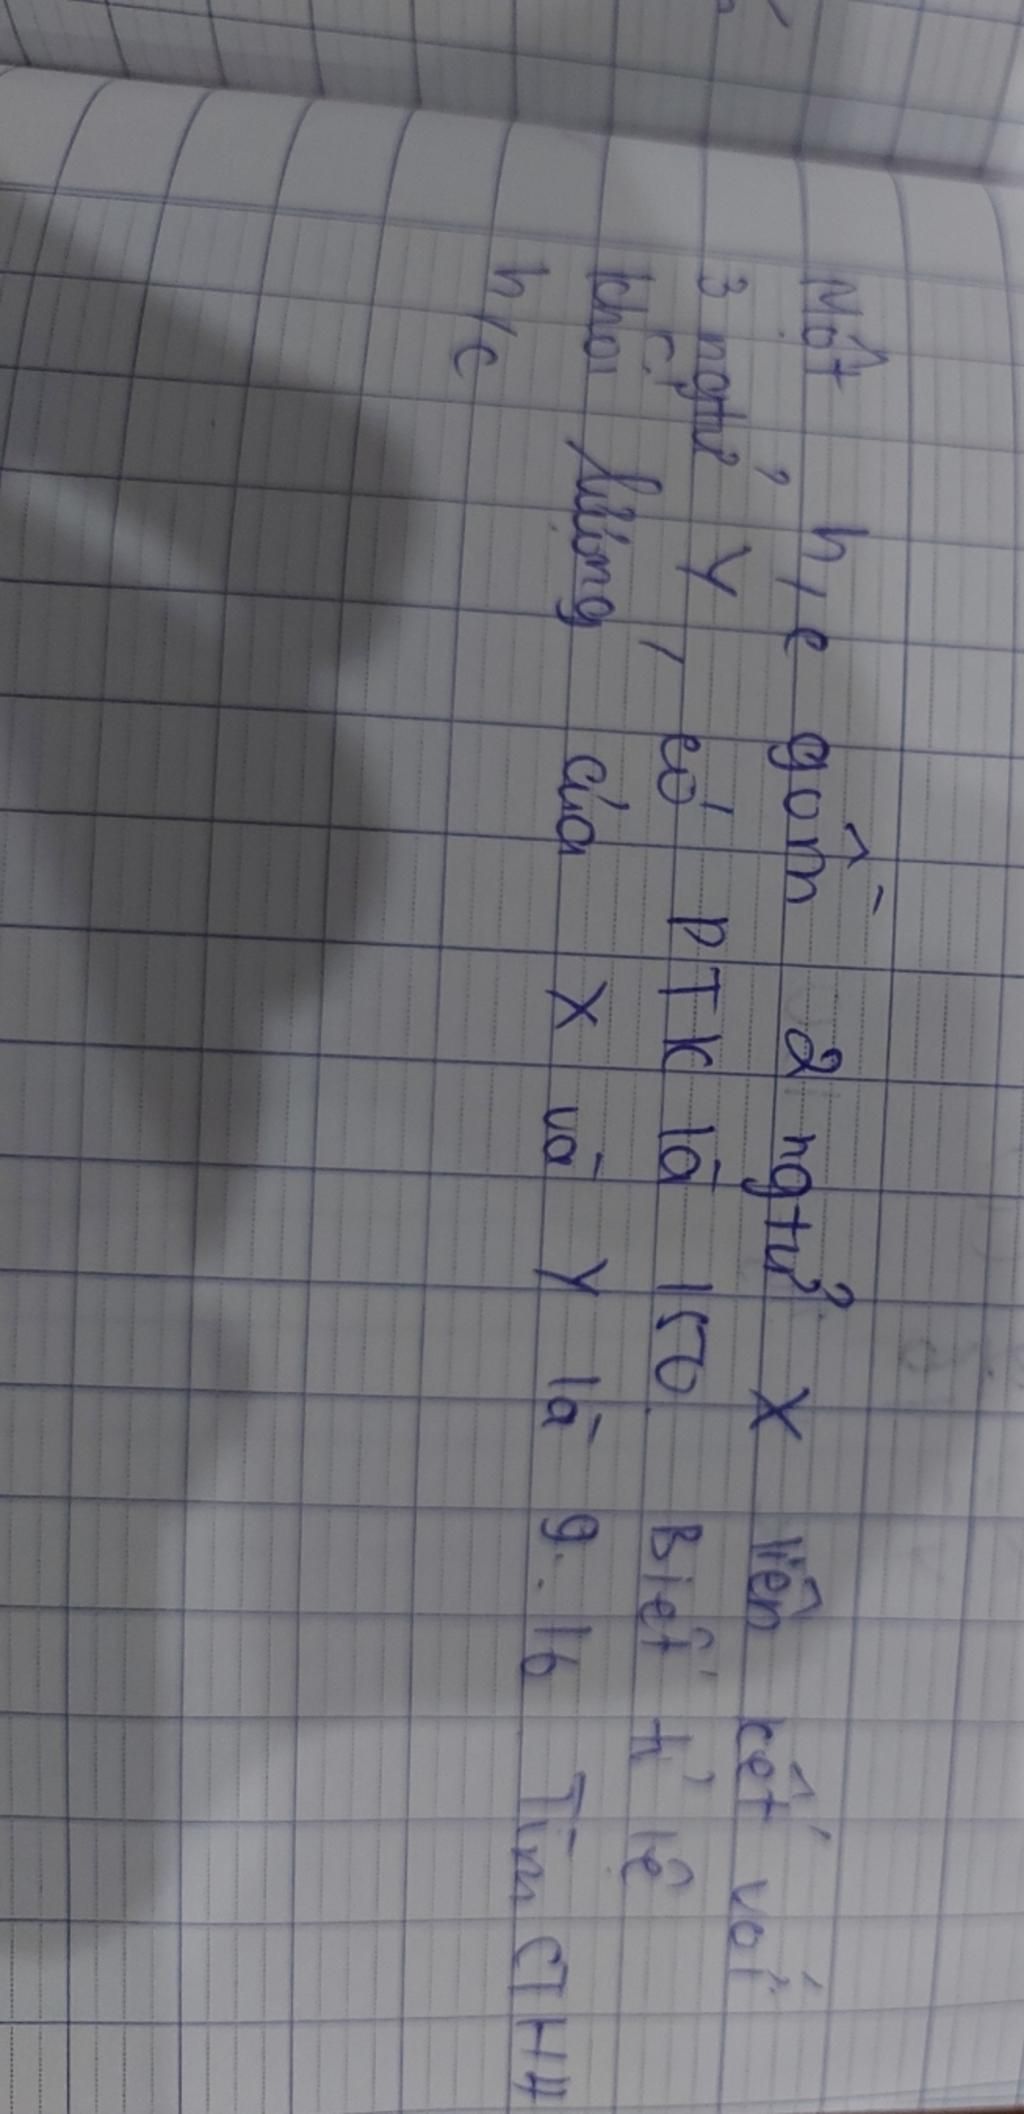 Một h/c gồm 2 ngtử X liên kết với
3 ngtử Y, có PTK là 150. Biết tỉ lệ
khối lượng của X và Y là 9:16 Tìm CTHH
h/c